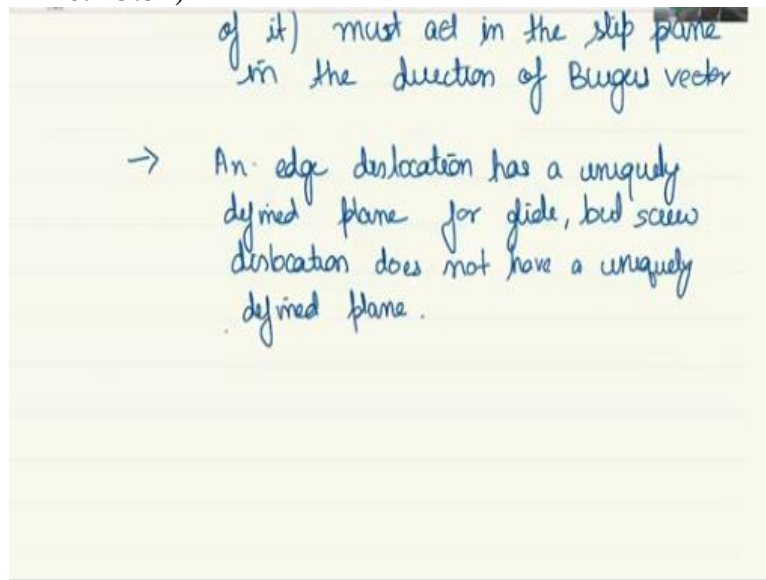 of it) must act in the slip plane
in the direction of Burgers vector
→ An edge dislocation has a uniquely
defined plane for glide, but screw
dislocation does not have a uniquely
defined plane.